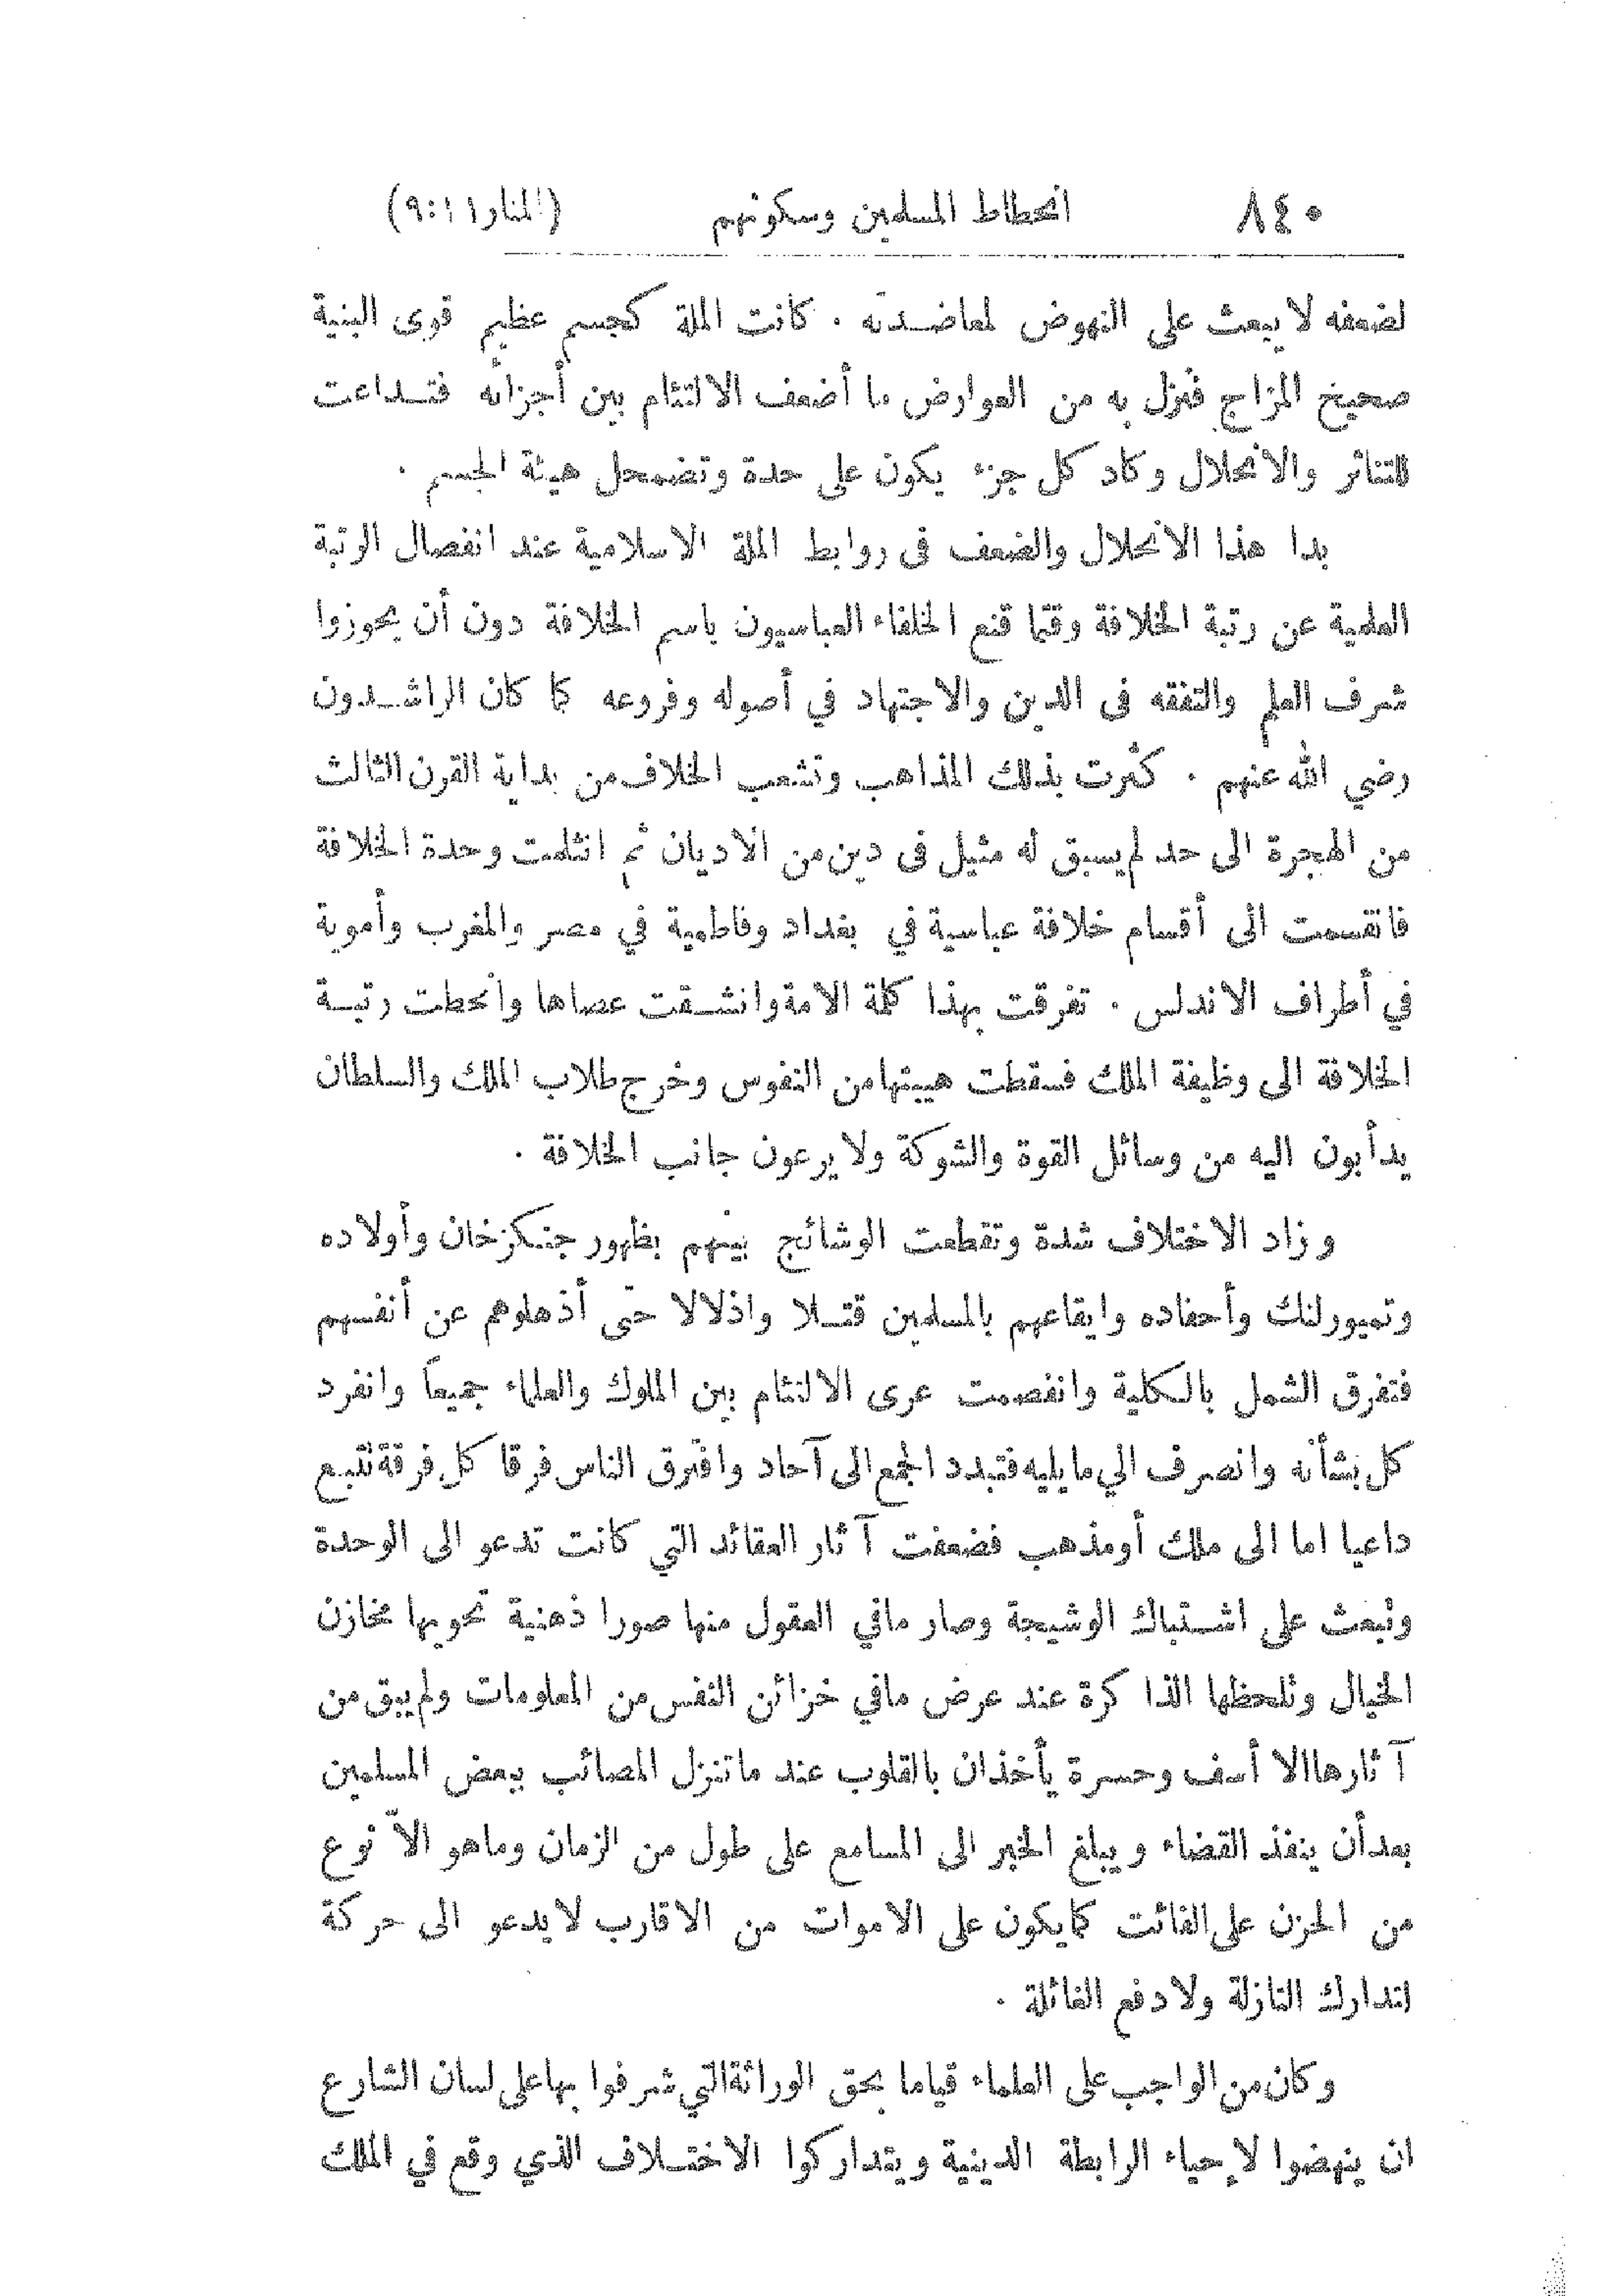 ٨٤٠ انحطاط المسلمين وسكونهم (المنار ١١:٩)
لضعفه لا يبعث على النهوض لمعاضدته . كانت الملة كجسم عظيم قوى البنية
صحيح المزاج فنزل به من العوارض ما أضعف الالتئام بين أجزائه فتداعت
للتناثر والانحلال وكاد كل جزء يكون على حدة وتضمحل هيئة الجسم .
بدا هذا الانحلال والضعف فى روابط الملة الاسلامية عند انفصال الرتبة
العلمية عن رتبة الخلافة وقتما قنع الخلفاء العباسيون باسم الخلافة دون أن يحوزوا
شرف العلم والتفقه فى الدين والاجتهاد في أصوله وفروعه كما كان الراشدون
رضي الله عنهم . كثرت بذلك المذاهب وتشعب الخلاف من بداية القرن الثالث
من الهجرة الى حد لم يسبق له مثيل فى دين من الاديان ثم انثلمت وحدة الخلافة
فانقسمت الى أقسام خلافة عباسية في بغداد وفاطمية في مصر والمغرب وأموية
في أطراف الاندلس . تفرقت بهذا كلمة الامة وانشقت عصاها وانحطت رتبة
الخلافة الى وظيفة الملك فسقطت هيبتها من النفوس وخرج طلاب الملك والسلطان
يدأبون اليه من وسائل القوة والشوكة ولا يرعون جانب الخلافة .
وزاد الاختلاف شدة وتقطعت الوشائج بينهم بظهور جنكزخان وأولاده
وتيمورلنك وأحفاده وايقاعهم بالمسلمين قتلا واذلالا حتى أذهلوهم عن أنفسهم
فتفرق الشمل بالكلية وانفصمت عرى الالتئام بين الملوك والعلماء جميعاً وانفرد
كل بشأنه وانصرف الي ما يليه فتبدد الجمع الى آحاد وافترق الناس فرقا كل فرقة تتبع
داعيا اما الى ملك أو مذهب فضعفت آثار العقائد التي كانت تدعو الى الوحدة
وتبعث على اشتباك الوشيجة وصار مافي العقول منها صورا ذهنية تحويها مخازن
الخيال وتلحظها الذاكرة عند عرض مافي خزائن النفس من المعلومات ولم يبق من
آثارها الا أسف وحسرة يأخذان بالقلوب عند ماتنزل المصائب ببعض المسلمين
بعد أن ينفذ القضاء ويبلغ الخبر الى المسامع على طول من الزمان وماهو الاّ نوع
من الحزن على الفائت كما يكون على الاموات من الاقارب لا يدعو الى حركة
لتدارك النازلة ولا دفع الغائلة .
وكان من الواجب على العلماء قياما بحق الوراثة التي شرفوا بها على لسان الشارع
ان ينهضوا لإحياء الرابطة الدينية ويتداركوا الاختلاف الذي وقع في الملك